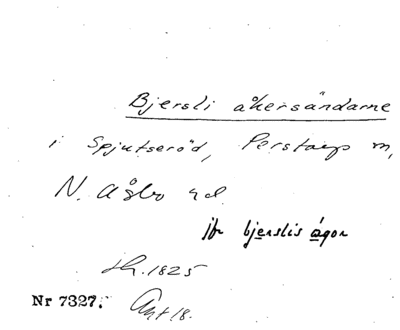 Bjersli åkersändarne
i Spjutseröd, Perstorp m,
N. Åsbo hd.
jfr bjerslis ägor
Sk. 1825
Nr 7327. Ant 18.